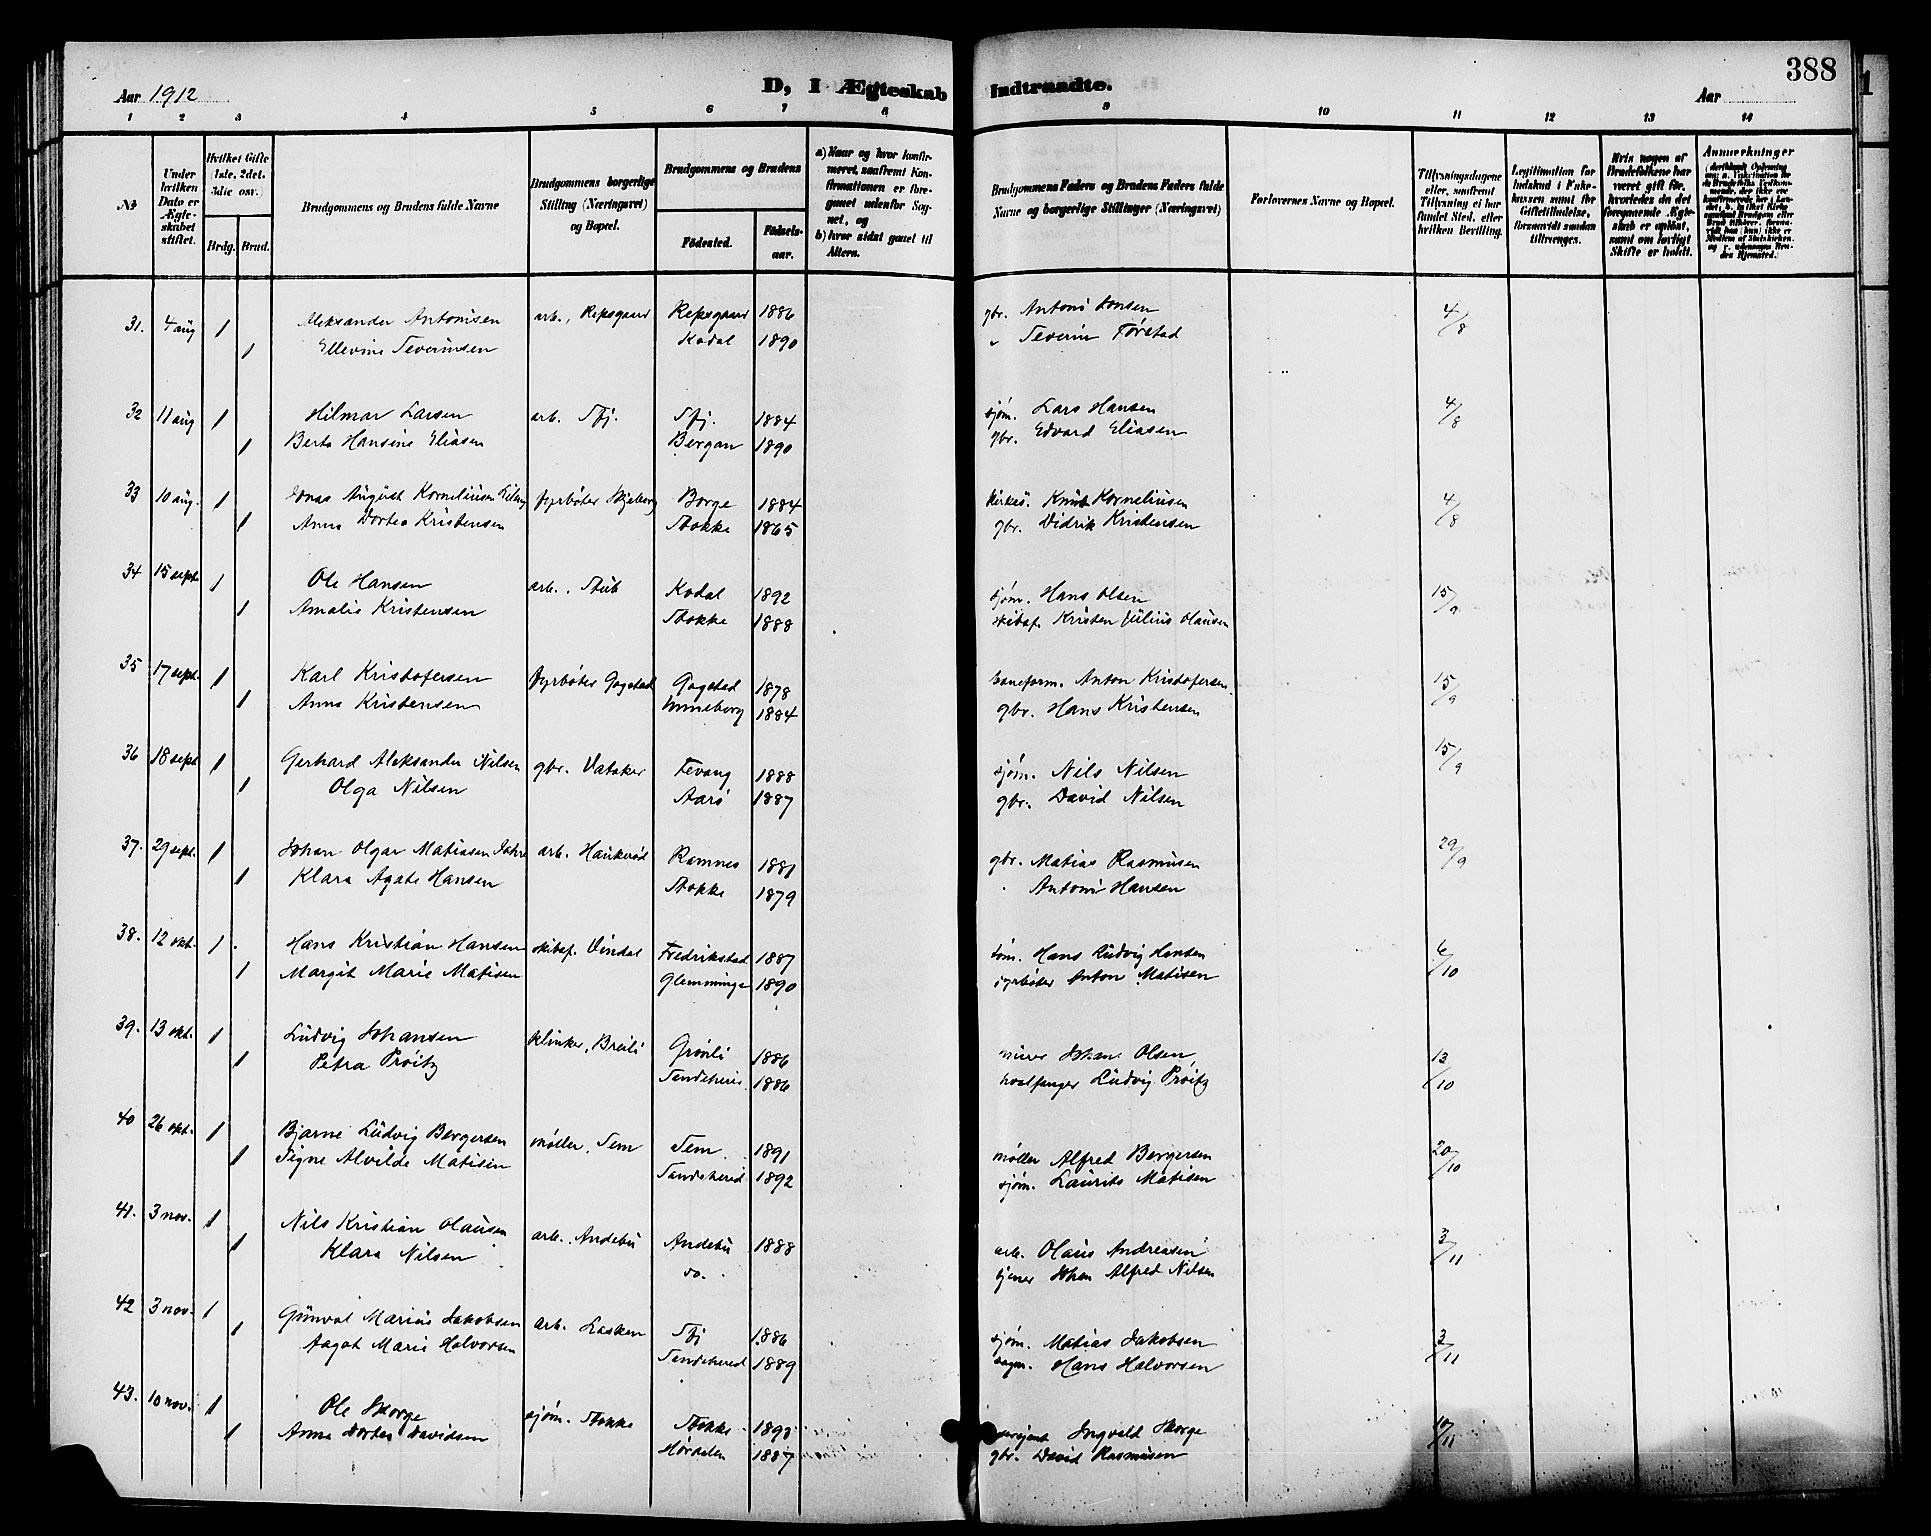 388
Aar 1912 D, I Ægteskab Indtraadte. Aar
1 2 3 4 5 6 7 8 9 10 11 12 13 14
№
Under hvilken Dato er Ægteskabet stiftet.
Hvilket Gifte 1ste, 2det, 3die osv.
Brdg. Brud.
Brudgommens og Brudens fulde Navne
Brudgommens borgerlige Stilling (Næringsvei) og Bopæl.
Brudgommens og Brudens
Fødested.
Fødselsaar.
a) Naar og hvor konfirmeret, saafremt Konfirmationen er foregaaet udenfor Sognet, og
b) hvor sidst gaaet til Alters.
Brudgommens Faders og Brudens Faders fulde Navne og borgerlige Stillinger (Næringsvei)
Forlovernes Navne og Bopæl.
Tillysningsdagene eller, saafremt Tillysning ei har fundet Sted, efter hvilken Bevilling.
Legitimation for Indskud i Enkekassen samt for Giftetilladelse, forsaavidt saadan tiltrænges.
Hvis nogen af Brudefolkene har været gift før, hvorledes da det foregaaende Ægteskab er opløst, samt om lovligt Skifte er holdt.
Anmærkninger
31. 4 aug 1 Aleksander Antonisen arb., Repsgaard Repsgaard 1886 gbr. Antoni Jonsen 4/8
1 Ellevine Severinsen Kodal 1890 " Severin Førstad
32 11 aug 1 Hilmar Larsen arb. Sfj. Sfj. 1884 sjøm. Lars Hansen 4/8
1 Berta Hansine Eliasen Bergan 1890 gbr. Edvard Eliasen
33 10 aug. 1 Jonas August Korneliusen fyrbøter Skjeberg Borge 1884 kirkes. Knut Korneliusen 4/8
1 Anna Dortea Kristensen Stokke 1865 gbr. Didrik Kristensen
34 15 sept. 1 Ole Hansen arb., Stub Kodal 1892 sjøm. Hans Olsen 15/9
1 Amalie Kristensen Stokke 1888 skibsf. Kristen Julius Clausen
35 17 sept. 1 Karl Kristofersen fyrbøter Gogstad Gogstad 1878 baneform. Anton Kristofersen. 15/9
1 Anna Kristensen Unneberg 1884 gbr. Hans Kristensen
36 18 sept 1 Gerhard Aleksander Nilsen gbr. Vataker Fevang 1888 sjøm. Nils Nilsen 15/9
1 Olga Nilsen Aarø 1887 gbr. David Nilsen
37. 29 sept. 1 Johan Olgar Matiasen Jahre arb. Haukerød Ramnes 1881 gbr. Matias Rasmusen 29/9
1 Klara Agate Hansen Stokke 1879 Antoni Hansen
38. 12 okt. 1 Hans Kristian Hansen skibsf. Vindal Fredrikstad 1887 tøm. Hans Ludvig Hansen 6/10
1 Margit Marie Matisen Glemminge 1890 fyrbøter Anton Matisen
39. 13 okt. 1 Ludvig Johansen klinker, Breili Grønli 1886 murer Johan Olsen 13/10
1 Petra Prøitz Sandeherred. 1886 hvalfanger Ludvig Prøitz
40 26 okt. 1 Bjarne Ludvig Bergersen møller, Sem Sem 1891 møller Alfred Bergersen 20/10
1 Signe Alvilde Matisen Sandeherred 1892 sjøm. Laurits Matisen
41. 3 nov. 1 Nils Kristian Olausen arb. Andebu Andebu 1888 arb. Olaus Andreasen 3/11
1 Klara Nilsen do. tjener Johan Alfred Nilsen
42 3 nov. 1 Gunval Marius Jakobsen arb. Lasken Sfj 1886 sjøm. Matias Jakobsen 3/11
1 Aagot Marie Halvorsen Sandeherred 1889 Hans Halvorsen
43. 10 nov. 1 Ole Skorge sjøm. Stokke Stokke Ingvald Skorge 10/11
1 Anna Dortea Davidsen Hørdalen 1887 gbr. David Rasmusen